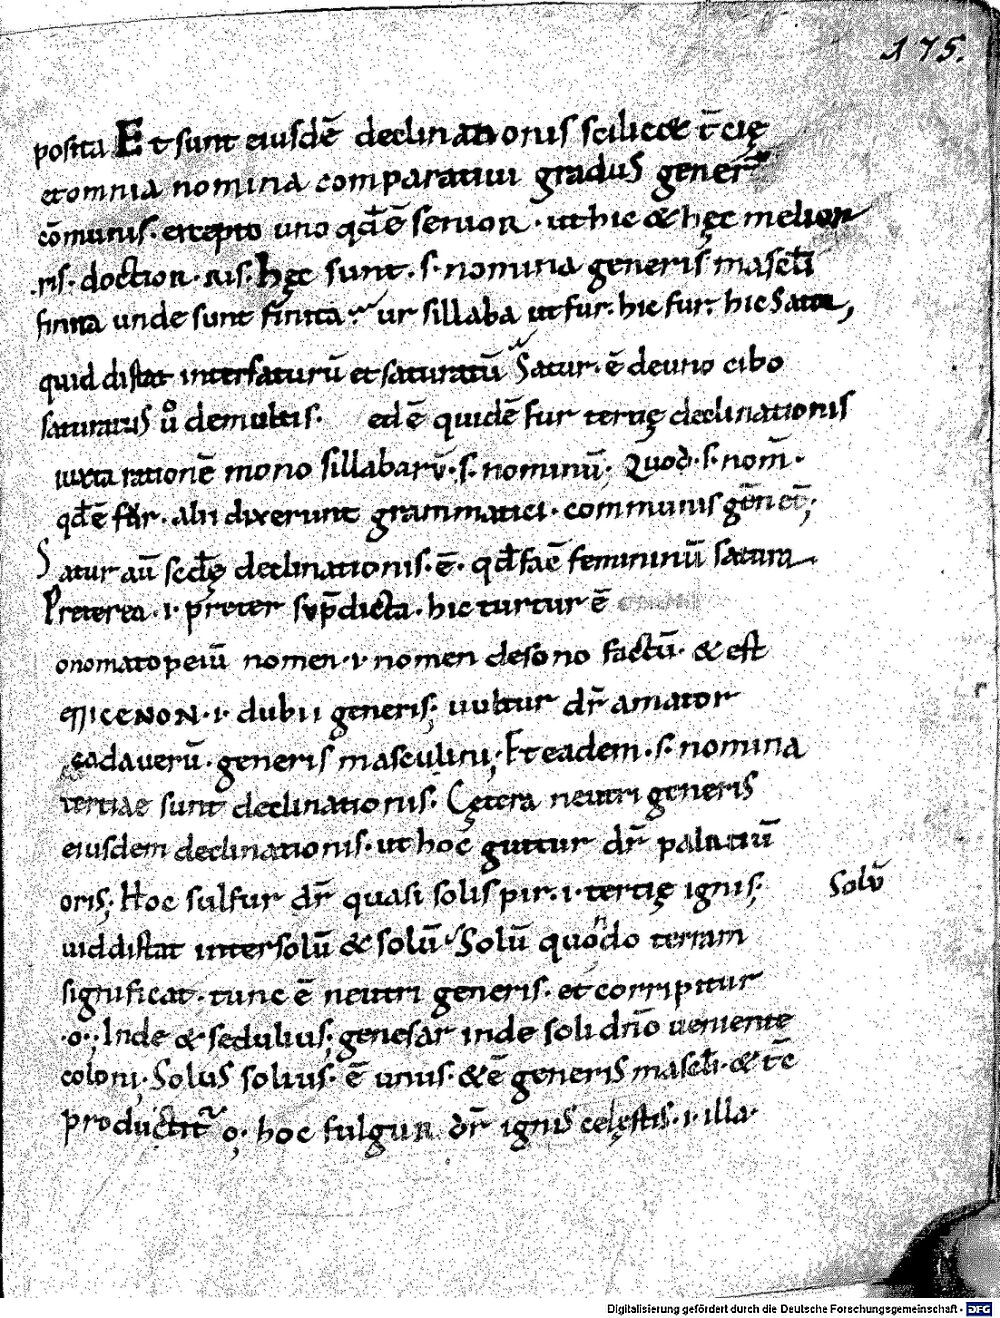 175.
posita Et sunt eiusdē declinationis scilicet & t̄cię
et omnia nomina comparatiui gradus gener̄
cōmunis. excepto uno qd̄ ē senior. ut hic & hęc melior
.ris. doctior .ris. hęc sunt .s. nomina generis mascl̄i
finita unde sunt finita. ur sillaba ut fur. hic fur. hic Satur,
quid distat inter saturū et saturatū Satur. ē de uno cibo
saturatus ů de multis. ed ē quidē fur tertię declinationis
iuxta rationē mono sillabarū .s. nominū. Quod .s. nom̄.
qd̄ ē fur. alii dixerunt grammatici. communis gēn
Satur aū scd̄ę declinationis. ē. qd̄ faē femininū satura.
Preterea .i. preter sup̄dicta. hic turtur ē
onomatopeiū nomen .i. nomen de sono factū. & est
epicenon .i. dubii generis; uultur dr̄ amator
cadauerū. generis masculini; Et eadem .s. nomina
tertiae sunt declinationis. Cętera neutri generis
eiusdem declinationis. ut hoc guttur dr̄ palatiū
oris; Hoc sulfur dr̄ quasi solis pir. i. tertię ignis;
Solū
uid distat inter solū & solū Solū quondo terram
significat. tunc ē neutri generis. et corripitur
.o.; Inde & sedulius; genesar inde soli dn̄o ueniente
coloni. Solus solius. ē unus. & ē generis mascl̄i. & tc̄
productit o. hoc fulgur dr̄ ignis celęstis .i. illa.
Digitalisierung gefördert durch die Deutsche Forschungsgemeinschaft - DFG